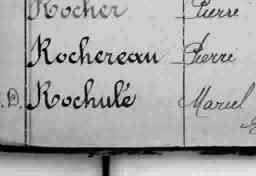 Rocher Pierre
Rochereau Pierre
D. Rochulé Marcel